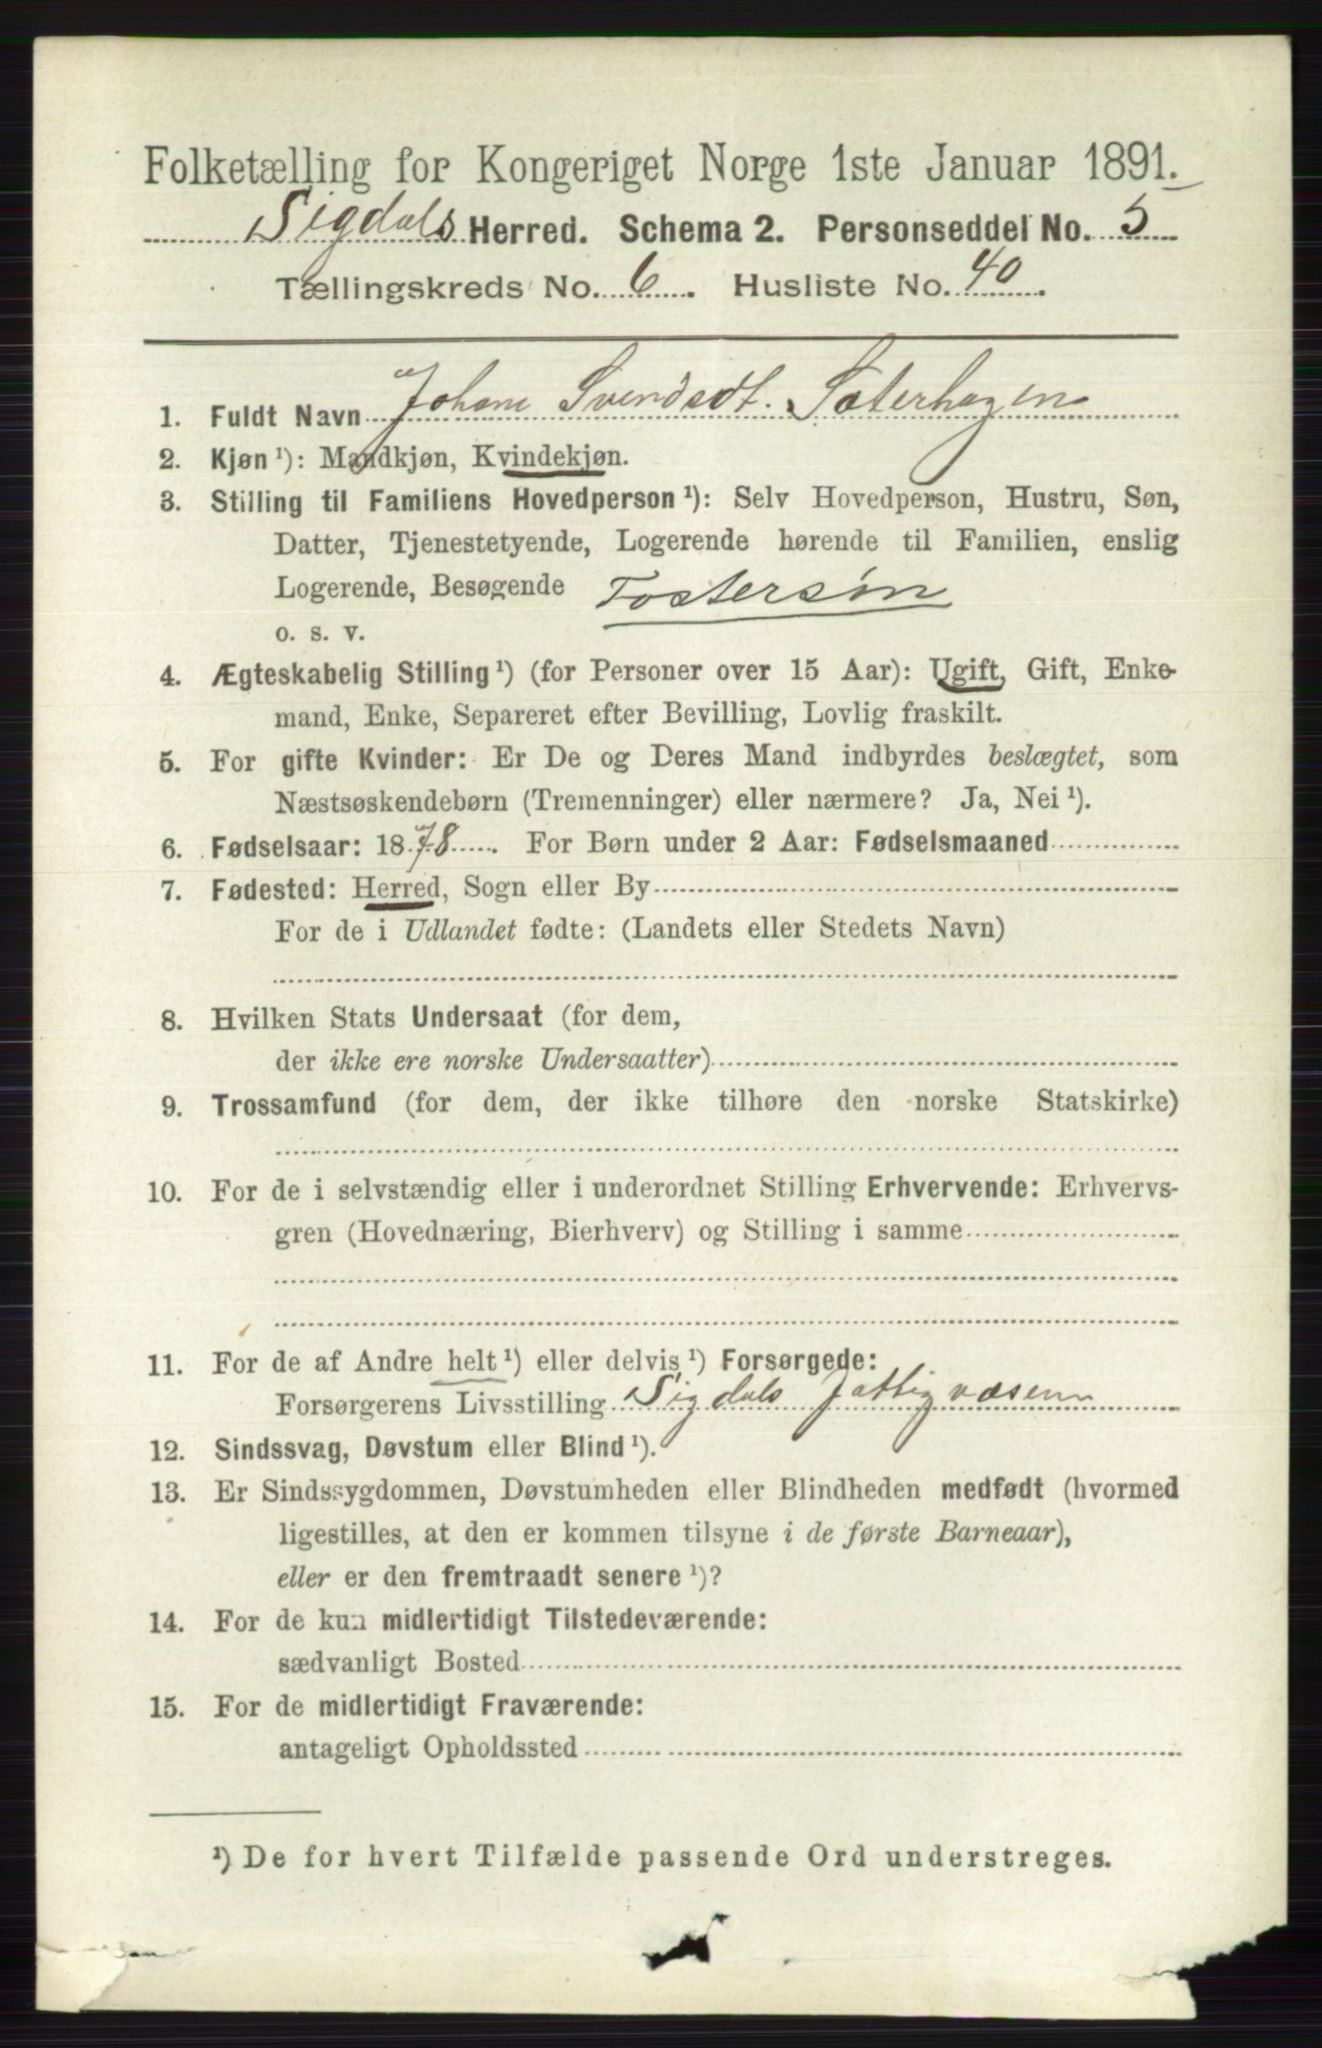 Folketælling for Kongeriget Norge 1ste Januar 1891.
Sigdals Herred. Schema 2. Personseddel No. 5
Tællingskreds No. 6. Husliste No. 40.
1. Fuldt Navn Johane Svendsdt. Sæterhagen
2. Kjøn ¹): Mandkjøn, Kvindekjøn.
3. Stilling til Familiens Hovedperson ¹): Selv Hovedperson, Hustru, Søn,
Datter, Tjenestetyende, Logerende hørende til Familien, enslig
Logerende, Besøgende Fostersøn
o. s. v.
4. Ægteskabelig Stilling ¹) (for Personer over 15 Aar): Ugift, Gift, Enke-
mand, Enke, Separeret efter Bevilling, Lovlig fraskilt.
5. For gifte Kvinder: Er De og Deres Mand indbyrdes beslægtet, som
Næstsøskendebørn (Tremenninger) eller nærmere? Ja, Nei ¹).
6. Fødselsaar: 1878. For Børn under 2 Aar: Fødselsmaaned
7. Fødested: Herred, Sogn eller By
For de i Udlandet fødte: (Landets eller Stedets Navn)
8. Hvilken Stats Undersaat (for dem,
der ikke ere norske Undersaatter)
9. Trossamfund (for dem, der ikke tilhøre den norske Statskirke)
10. For de i selvstændig eller i underordnet Stilling Erhvervende: Erhvervs-
gren (Hovednæring, Bierhverv) og Stilling i samme
11. For de af Andre helt ¹) eller delvis ¹) Forsørgede:
Forsørgerens Livsstilling Sigdals Fattigvæsen
12. Sindssvag, Døvstum eller Blind ¹).
13. Er Sindssygdommen, Døvstumheden eller Blindheden medfødt (hvormed
ligestilles, at den er kommen tilsyne i de første Barneaar),
eller er den fremtraadt senere ¹)?
14. For de kun midlertidigt Tilstedeværende:
sædvanligt Bosted
15. For de midlertidigt Fraværende:
antageligt Opholdssted
¹) De for hvert Tilfælde passende Ord understreges.